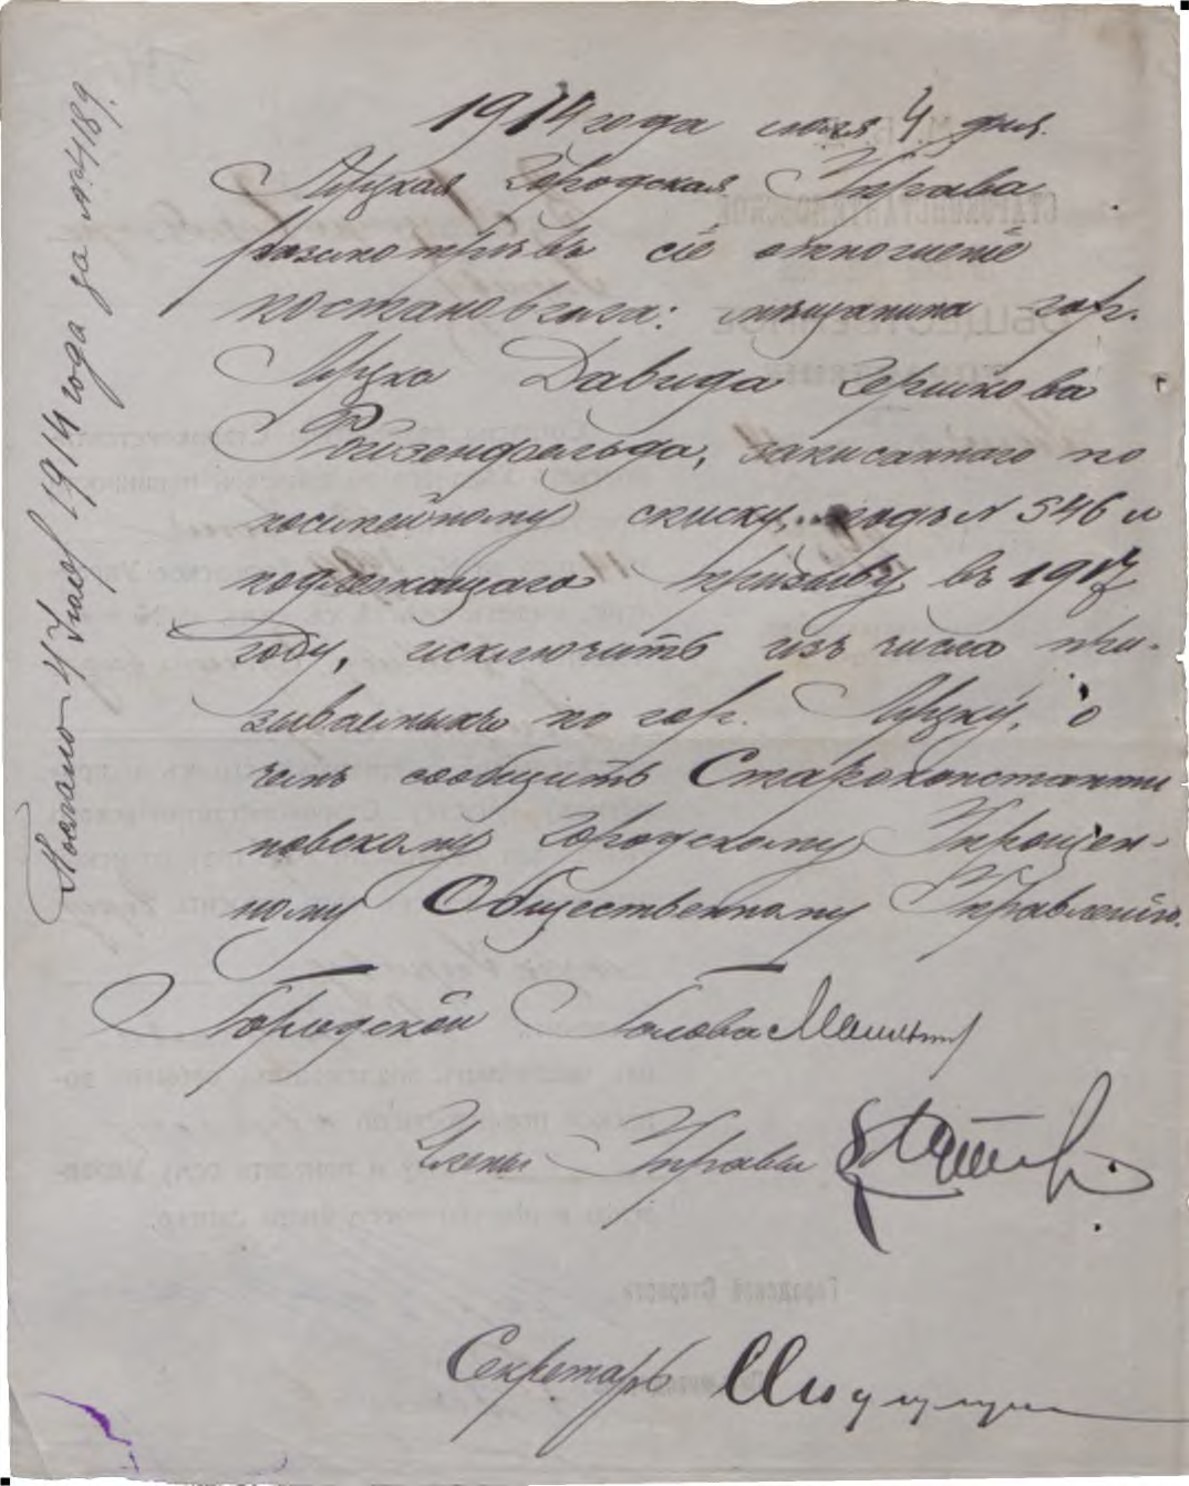 1914 года июля 4 дня.
Луцкая Городская Управа
разсмотрѣвъ сіе отношеніе
постановила: мѣщанина гор.
Луцка Давида Гершкова
Ройзенфельда, записаннаго по
посемейному списку подъ № 546 и
подлежащаго призыву въ 1917
году, исключить изъ числа при-
зываемыхъ по гор. Луцку, о
чемъ сообщить Староконстанти
новскому Городскому Упрощен-
ному Общественному Управленію.
Городской Голова
Члены Управы
Секретарь
Послано 4 Іюля 1914 года за № 4189.